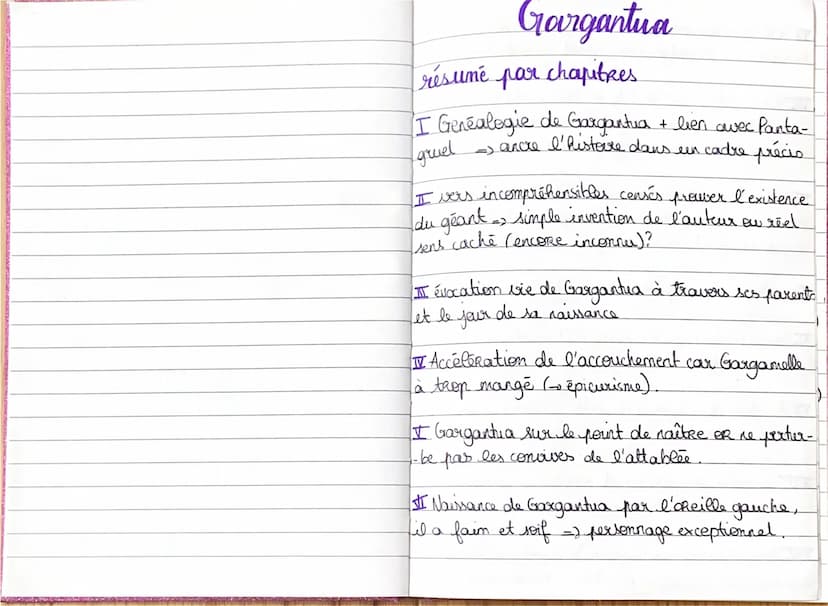 Gargantua
résumé par chapitres
I Généalogie de Gargantua + lien avec Panta-
gruel => ancre l'histoire dans un cadre précis
II vers incompréhensibles censés prouver l'existence
du géant => simple invention de l'auteur ou réel
sens caché (encore inconnu)?
III évocation vie de Gargantua à travers ses parents
et le jour de sa naissance
IV Accélération de l'accouchement car Gargamelle
à trop mangé (→ épicurisme).
V Gargantua sur le point de naître OR ne pertur-
-be pas les convives de l'attablée.
VI Naissance de Gargantua par l'oreille gauche,
il a faim et soif => personnage exceptionnel.